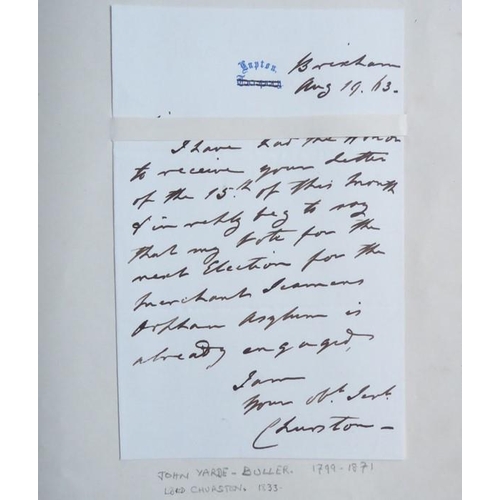 Lupton.
Brixham
Aug 19. 63-
I have had the Honor
to receive your letter
of the 15th of this Month
& in reply beg to say
that my Vote for the
next Election for the
Merchant Seamens
Orphan Asylum is
already engaged,
I am
Your Obt Servt
Churston-
JOHN YARDE-BULLER. 1799-1871
LORD CHURSTON.